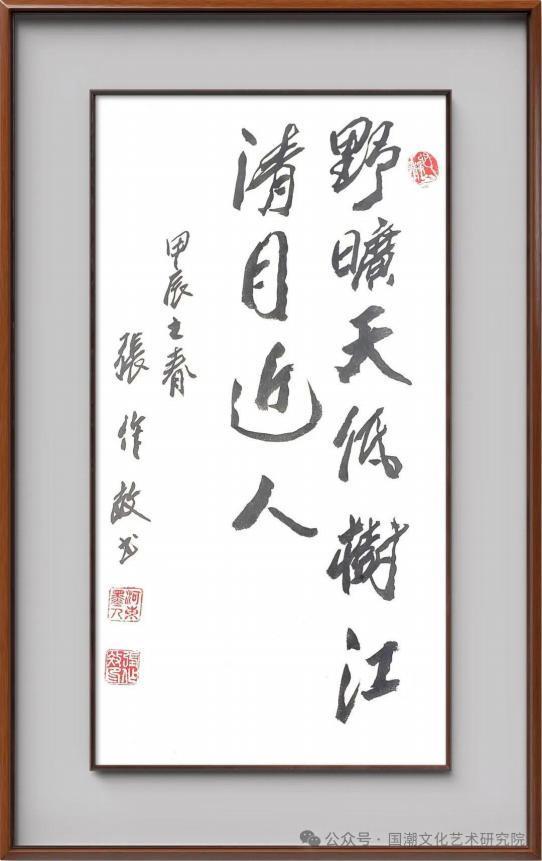 野曠天低樹江
清月近人
甲辰之春
張作啟书
河東墨人
公众号·国潮文化艺术研究院